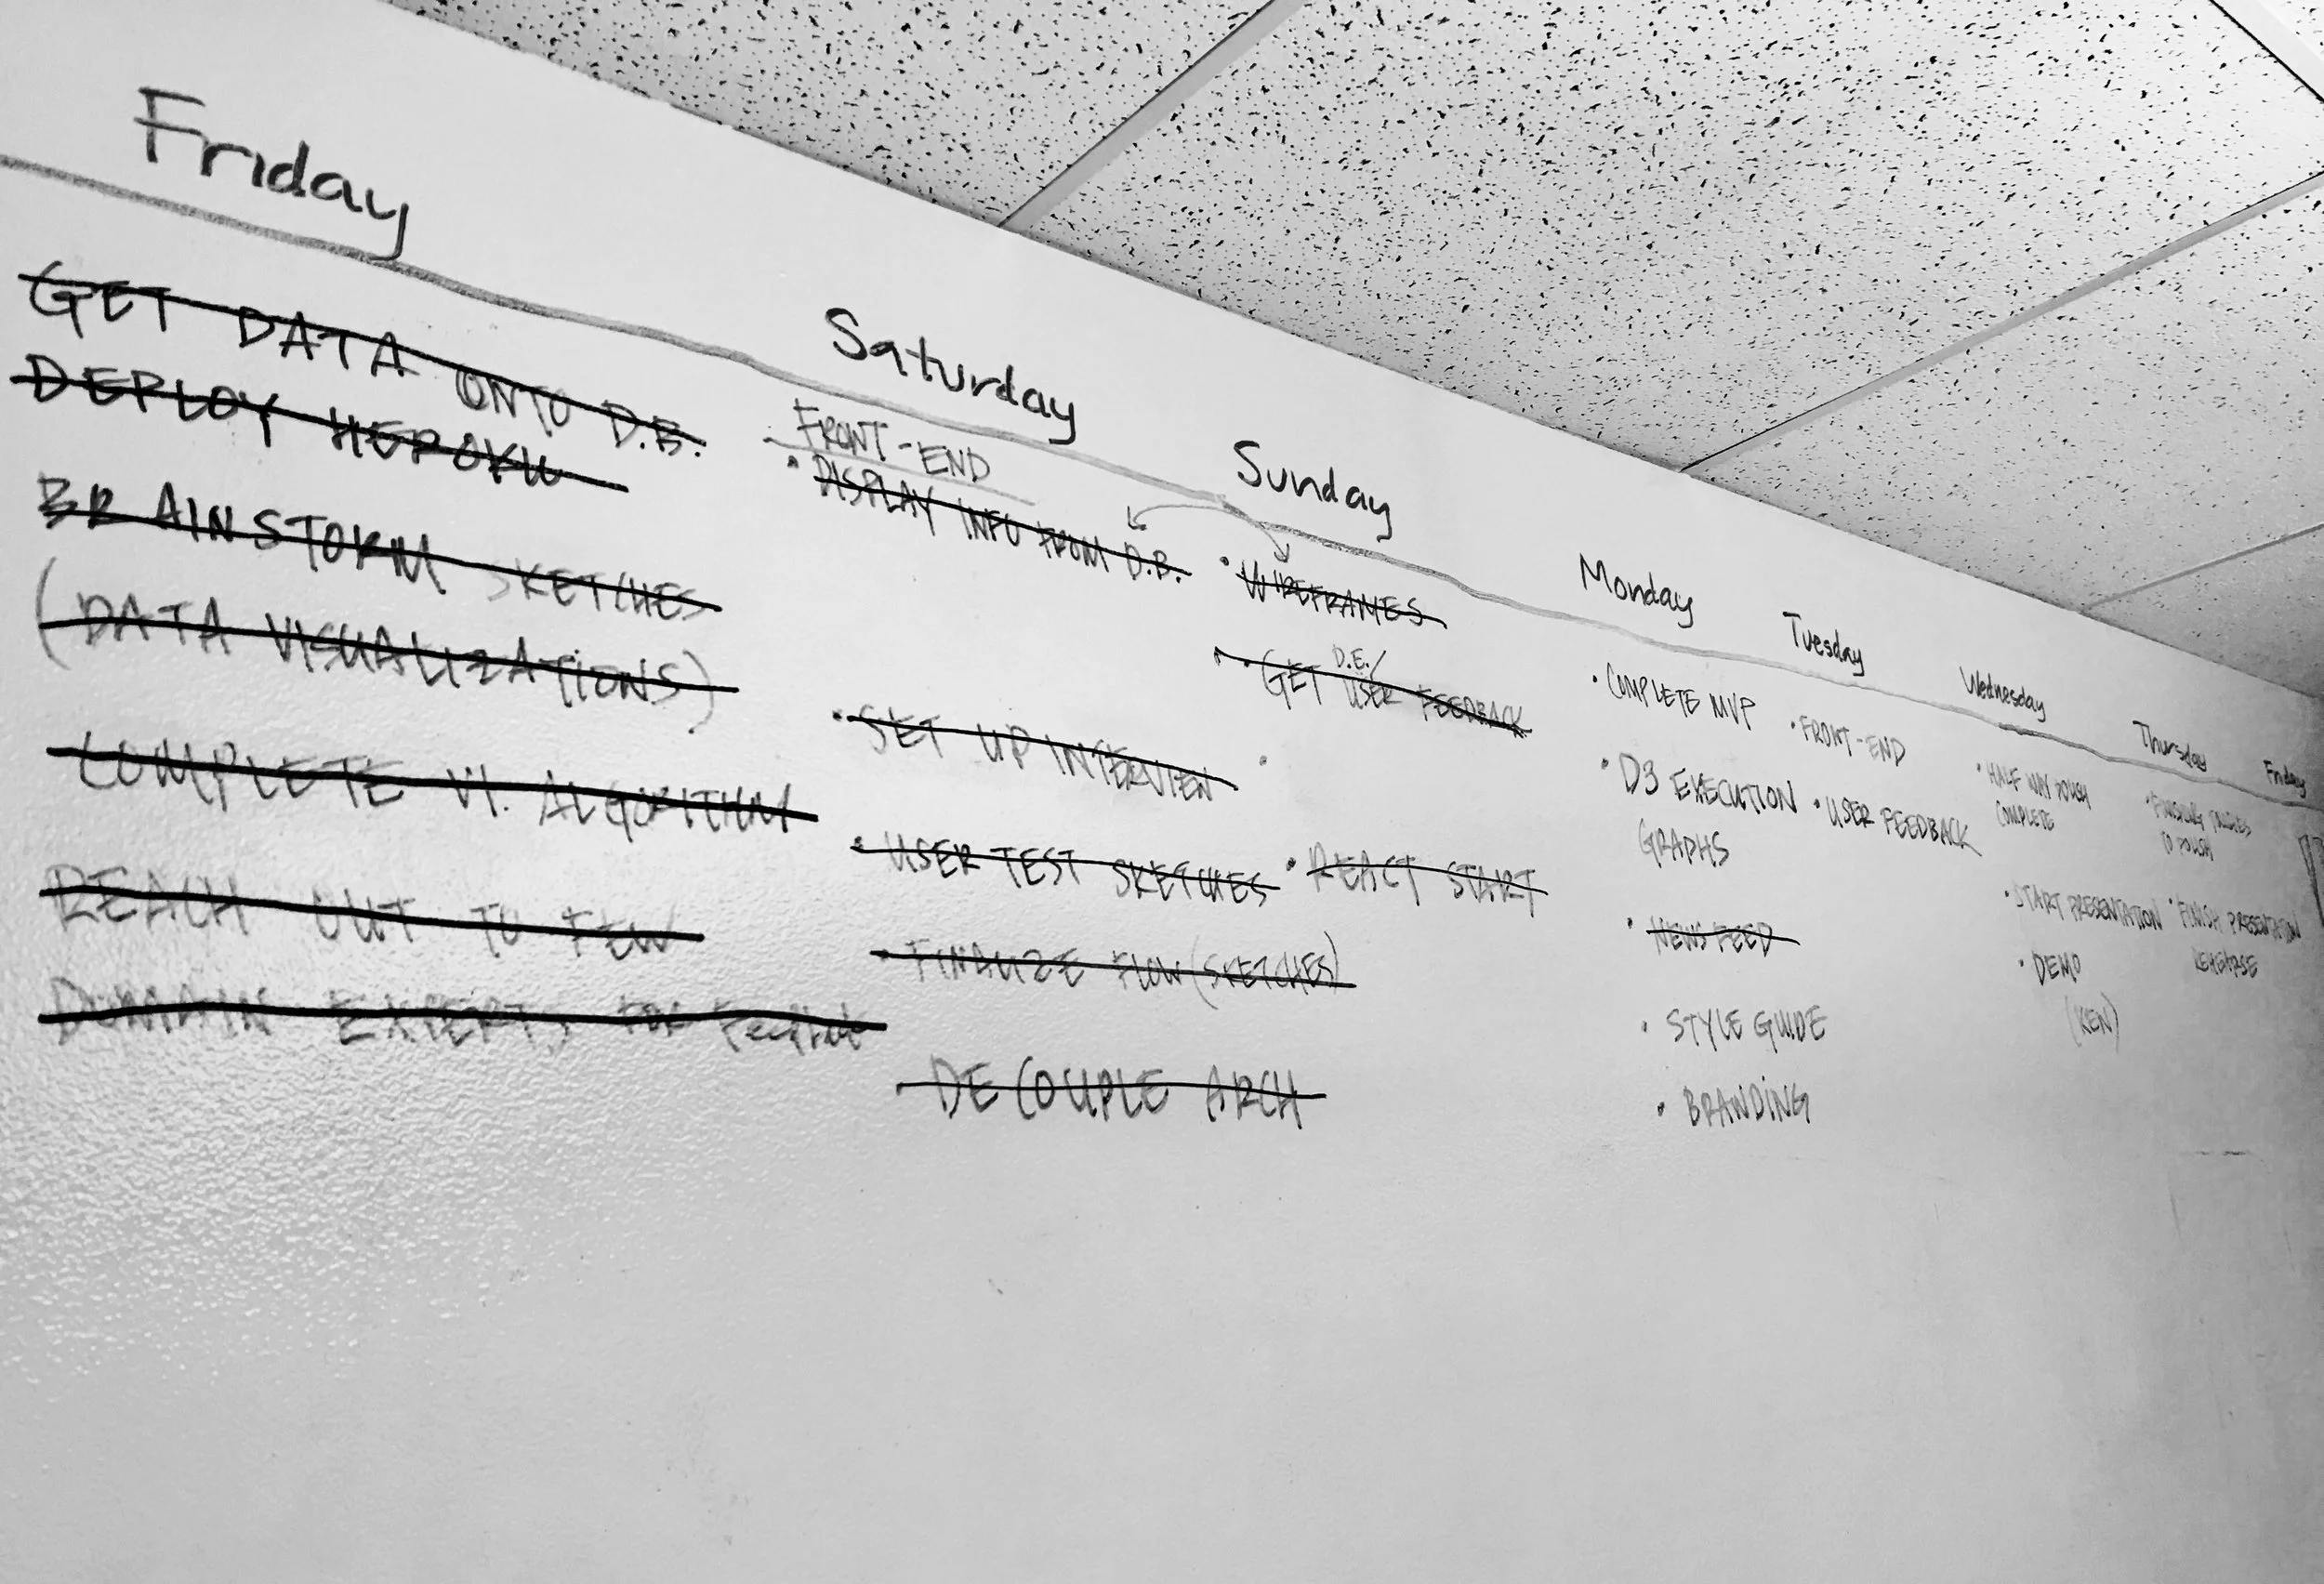 Friday
GET DATA ONTO D.B.
DEPLOY HEROKU
BRAINSTORM SKETCHES
(DATA VISUALIZATIONS)
COMPLETE V1. ALGORITHM
REACH OUT TO FEW
DOMAIN EXPERTS FOR
Saturday
FRONT-END
• DISPLAY INFO FROM D.B.
• SET UP INTERVIEW
• USER TEST SKETCHES
• FINALIZE FLOW (SKETCHES)
• DECOUPLE ARCH
Sunday
• WIREFRAMES
D.E./
• GET USER FEEDBACK
• REACT START
Monday
• COMPLETE MVP
• D3 EXECUTION
GRAPHS
• NEWS FEED
• STYLE GUIDE
• BRANDING
Tuesday
• FRONT-END
• USER FEEDBACK
Wednesday
• HALF WAY POLISH
COMPLETE
• START PRESENTATION
• DEMO
(KEN)
Thursday
• FINISHING
TO POLISH
• FINISH PRESENTATION
Friday